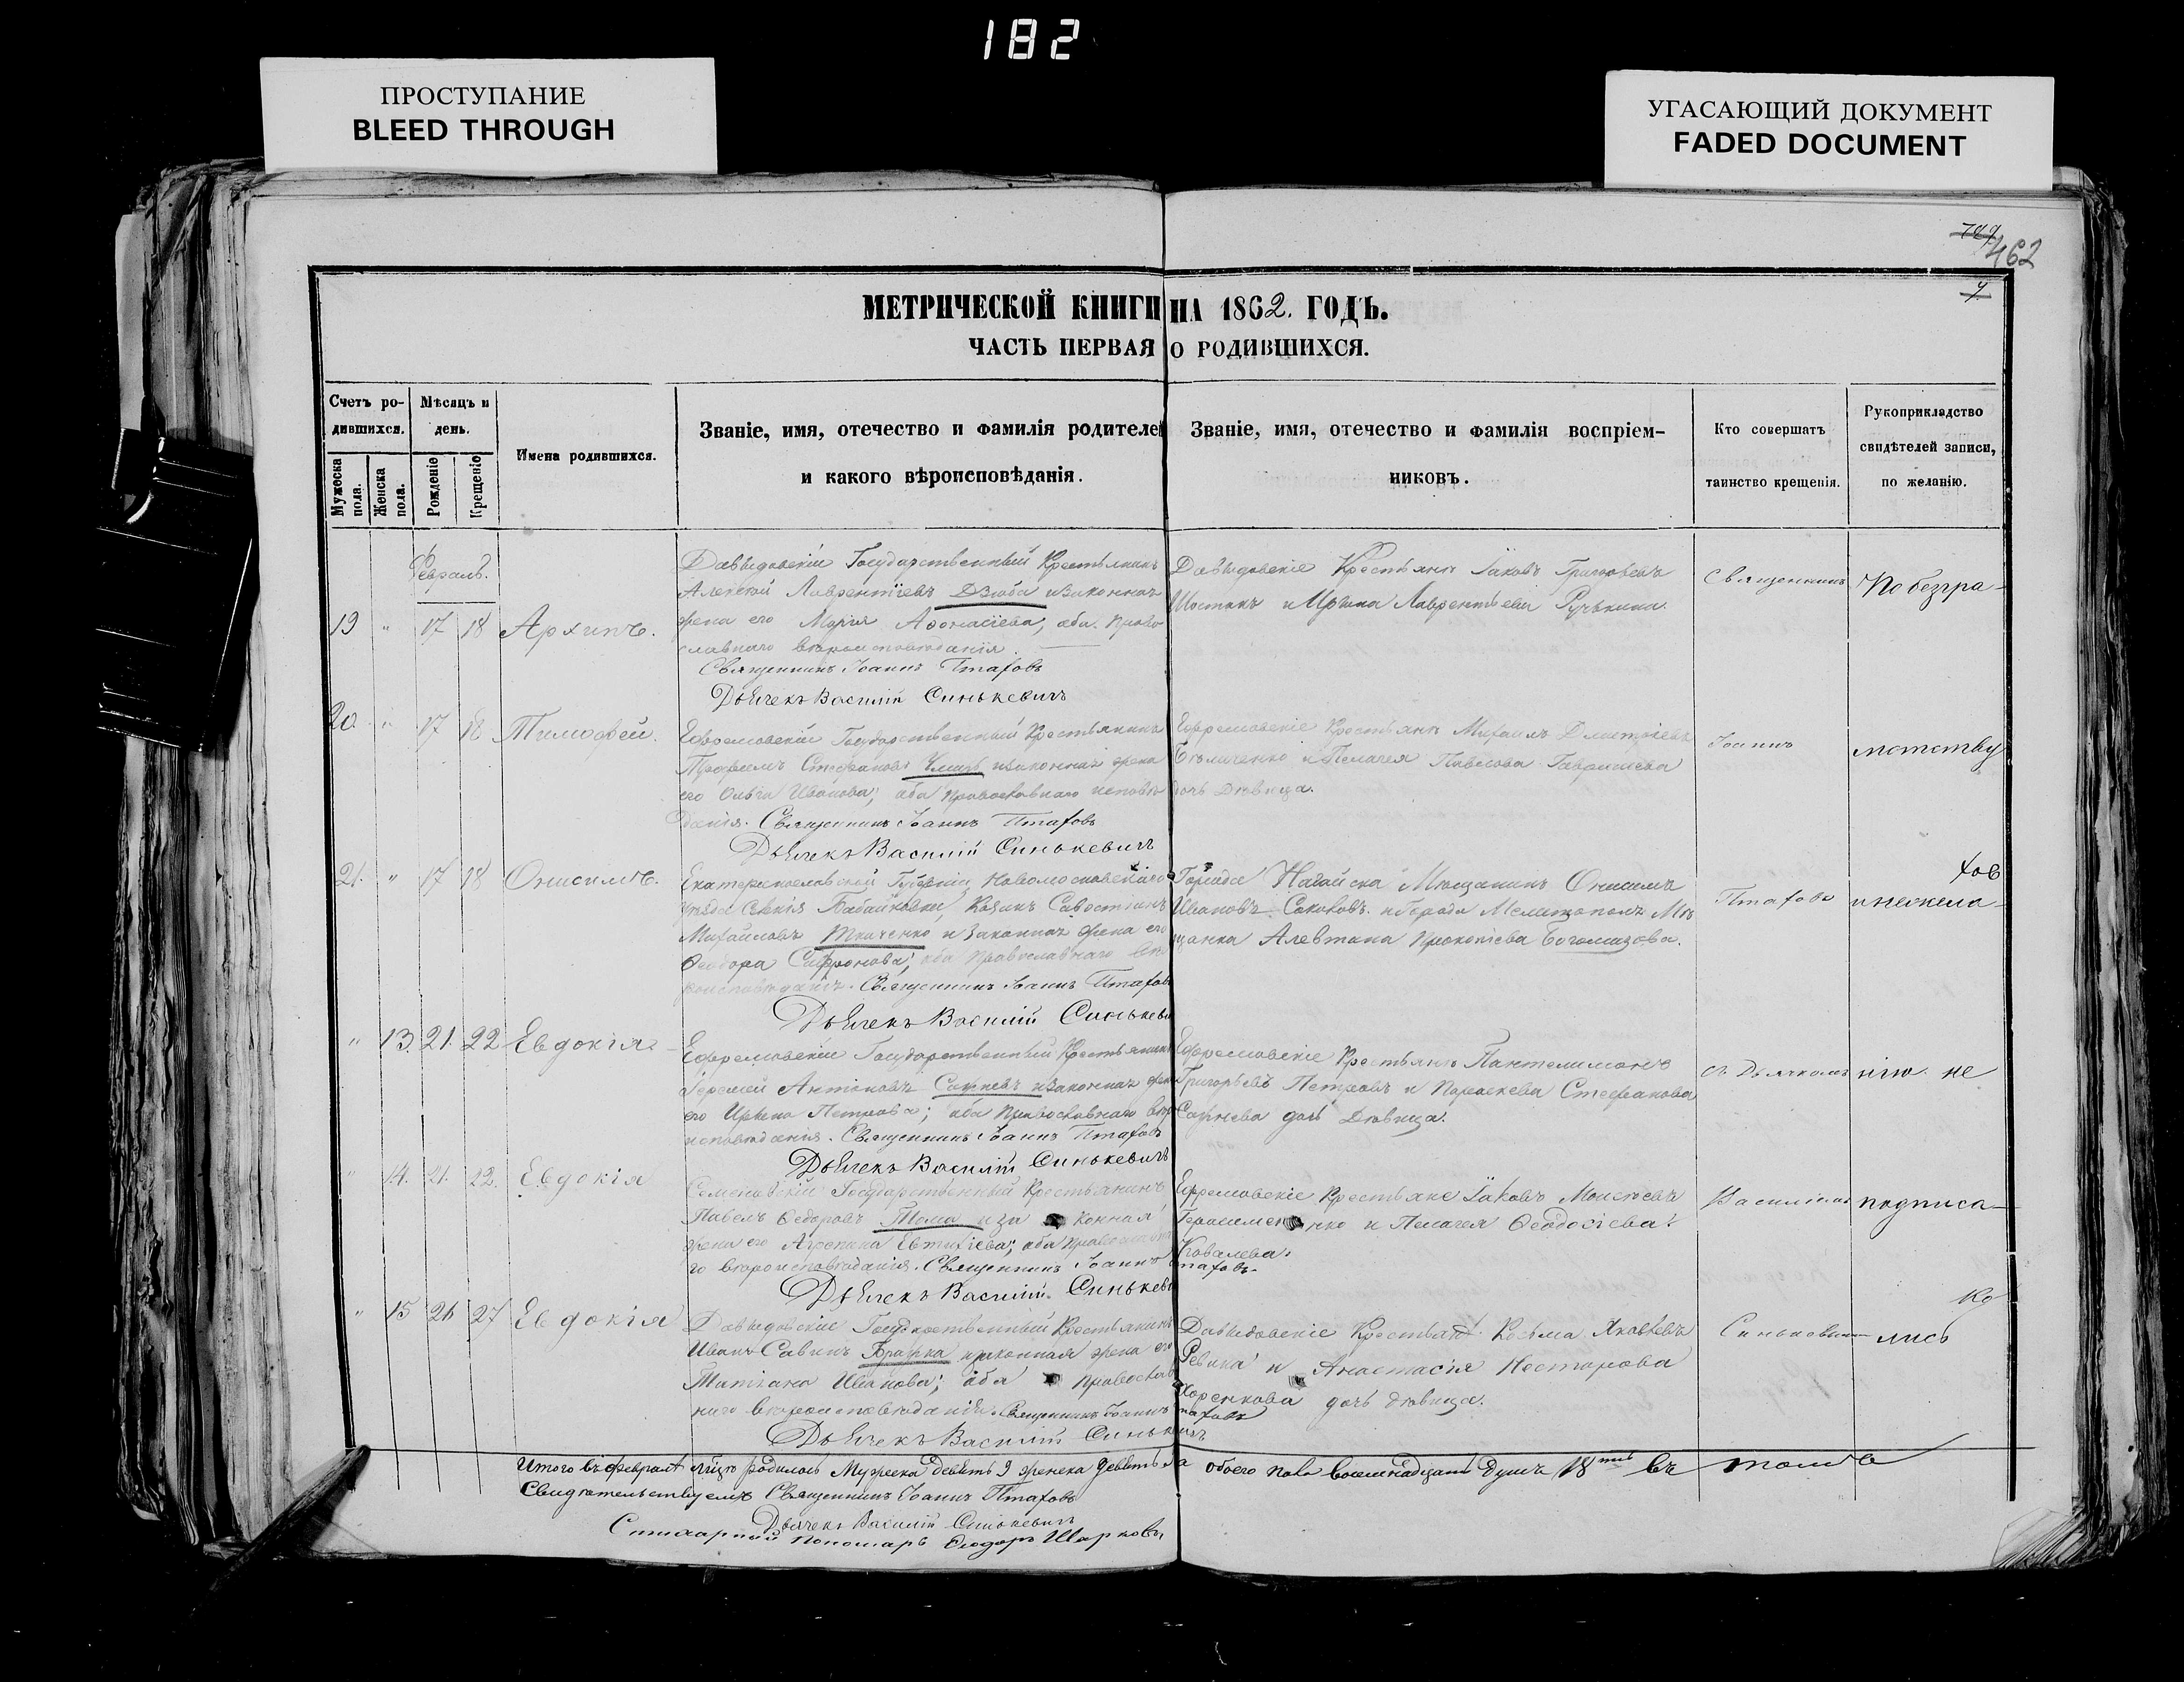 182
ПРОСТУПАНИЕ
BLEED THROUGH
УГАСАЮЩИЙ ДОКУМЕНТ
FADED DOCUMENT
462
МЕТРИЧЕСКОЙ КНИГИ НА 1862. ГОДЪ.
ЧАСТЬ ПЕРВАЯ О РОДИВШИХСЯ.
Счетъ ро-
дившихся.
Мужеска пола.
Женска пола.
Мѣсяцъ и
день.
Рожденіе
Крещеніе
Имена родившихся.
Званіе, имя, отечество и фамилія родителей
и какого вѣроисповѣданія.
Званіе, имя, отечество и фамилія воспріем-
никовъ.
Кто совершатъ
таинство крещенія.
Рукоприкладство
свидѣтелей записи,
по желанію.
Февраль.
19 " 17 18 Архипъ.
Давыдовскій Государственный Крестьянинъ
Алексѣй Лаврентіевъ Дзюба и законная
жена его Марія Афонасіева, оба право
славнаго вѣроисповѣданія.
Священникъ Іоаннъ Птаховъ
Дьячекъ Василій Синькевичъ
Давыдовскіе Крестьяне Іаковъ Григорьевъ
Шостакъ и Ирина Лаврентьева
Священникъ
По безгра-
20. " 17 18 Тимофей.
Ефремовскій Государственный Крестьянинъ
Трофимъ Стефановъ и законная жена
его Ольга Иванова; оба православнаго исповѣ
данія. Священникъ Іоаннъ Птаховъ
Дьячекъ Василій Синькевичъ
Ефремовскіе Крестьяне Михаилъ Дмитріевъ
и Пелагея Павлова Гаврилова
дочь Дѣвица.
Іоаннъ
мотству
21. " 17 18 Онисимъ.
Екатеринославской Губерніи Новомосковскаго
уѣзда Бабайковки Козакъ Савостіанъ
Михайловъ Ткаченко и законная жена его
Ѳеодора Сафронова; оба православнаго вѣ
роисповѣданія. Священникъ Іоаннъ Птаховъ
Дьячекъ Василій Синькеви
Города Нагайска Мѣщанинъ Онисимъ
Ивановъ Соколовъ. и города Мелитополя Мѣ
щанка Алевтина Прокопіева
Птаховъ
и нежела-
" 13. 21. 22 Евдокія.
Ефремовскій Государственный Крестьянинъ
Іеремей Антоновъ и законная жена
его Ирина Петрова; оба православнаго вѣро
исповѣданія. Священникъ Іоаннъ Птаховъ
Дьячекъ Василій Синькевичъ
Ефремовскіе Крестьяне Пантелимонъ
Григорьевъ Петровъ и Параскева Стефанова
дочь Дѣвица.
съ Дьячкомъ
нію не
" 14. 21. 22. Евдокія
Семеновскій Государственный Крестьянинъ
Павелъ Ѳедоровъ Тома и за конная
жена его Агрепина Евтихіева; оба православна
го вѣроисповѣданія. Священникъ Іоаннъ Птаховъ.
Дьячекъ Василій Синькеви
Ефремовскіе Крестьяне Іаковъ Моисѣевъ
Герасименко и Пелагея Ѳеодосіева
Ковалева.
Василіемъ
подписа-
" 15 26 27 Евдокія
Давыдовскіе Государственный Крестьянинъ
Иванъ Савинъ Бражка и законная жена его
Татіана Иванова; оба православ
наго вѣроисповѣданія. Священникъ Іоаннъ Птаховъ
Дьячекъ Василій Синькевичъ
Давыдовскіе Крестьяне Косьма Яковлевъ
Ревика и Анастасія Несторова
дочь дѣвица.
Синькевичемъ
лись
Итого въ февралѣ мѣсяцѣ родилось Мужеска девять 9 женска девять а обоего пола восемнадцать душъ 18
Свидѣтельствуемъ Священникъ Іоаннъ Птаховъ
Дьячекъ Василій Синькевичъ
Стихарный Пономарь Ѳеодоръ